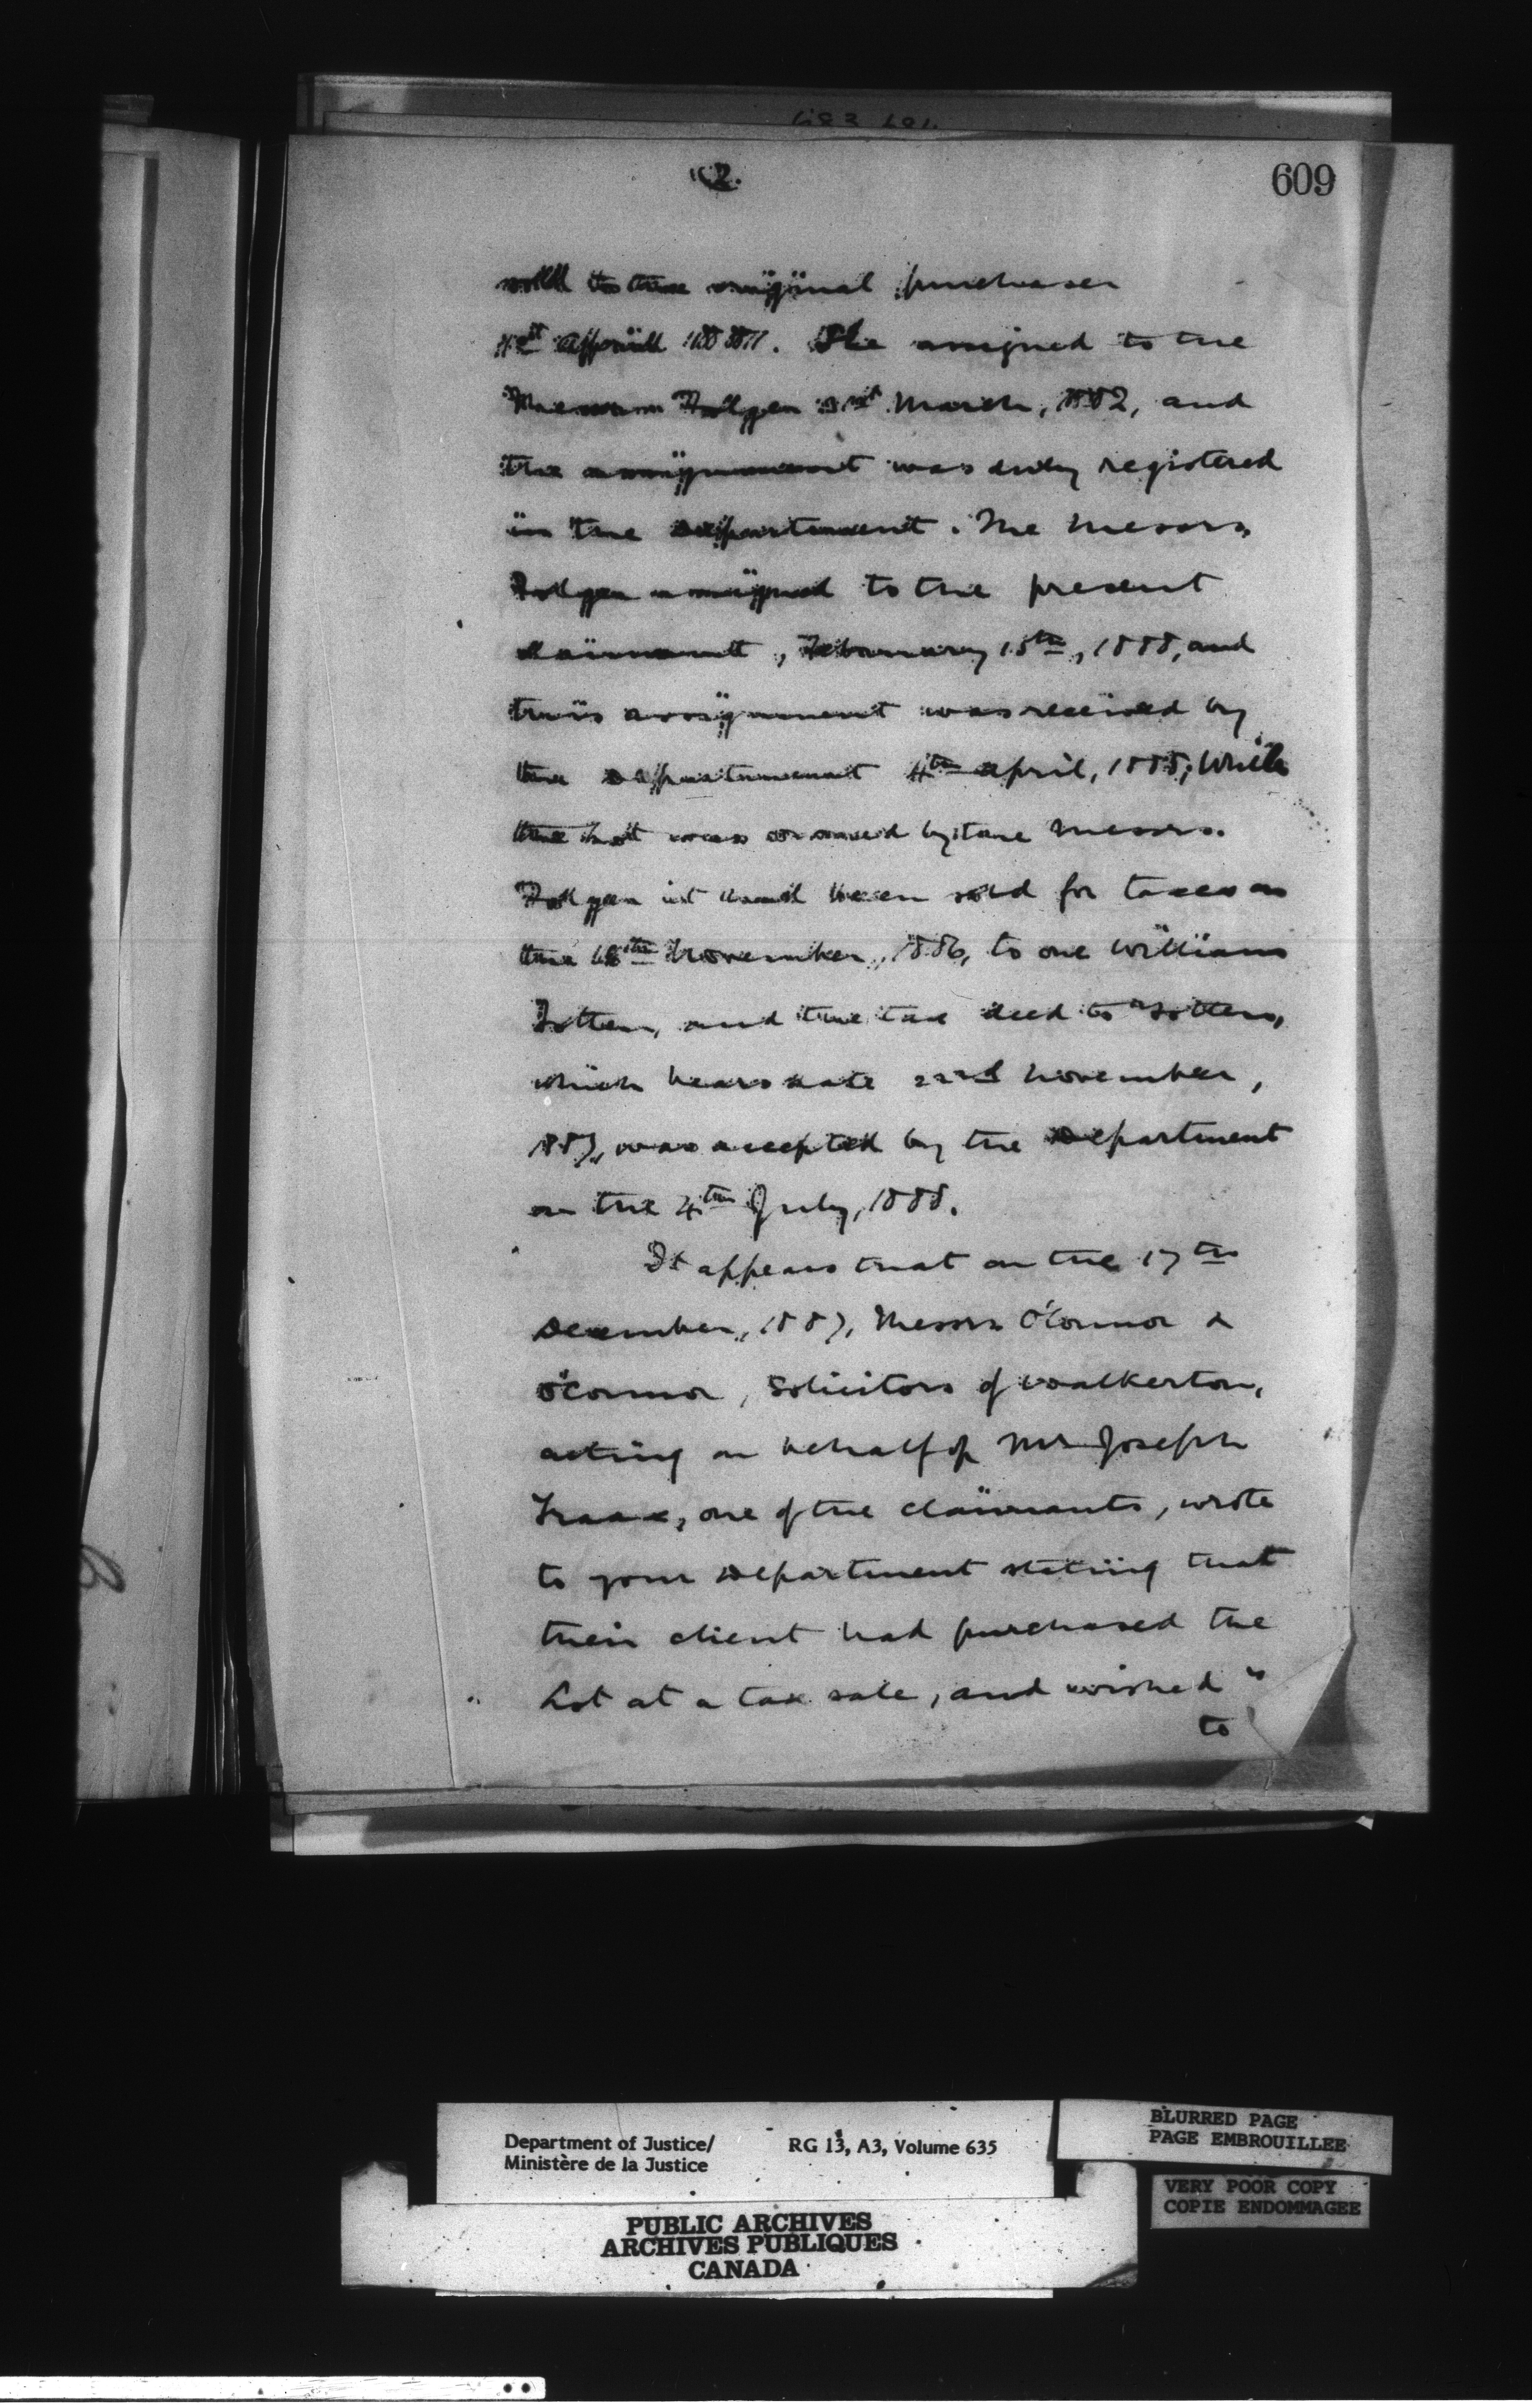 2.
609
sold to the original purchaser
1st April 1881. She assigned to the
Messrs Folger 31st March, 1882, and
the assignment was duly registered
in the Department. The Messrs
Folger assigned to the present
claimant, February 15th, 1888, and
this assignment was received by
the Department 4th April, 1888; While
the Lot was owned by the Messrs.
Folger it had been sold for taxes on
the 18th November, 1886, to one William
Totten, and the tax deed to Totten,
which bears date 22nd November,
1887, was accepted by the Department
on the 4th July, 1888.
It appears that on the 17th
December, 1887, Messrs O'Connor &
O'Connor, Solicitors of Walkerton,
acting on behalf of Mr Joseph
one of the claimants, wrote
to your Department stating that
their client had purchased the
Lot at a tax sale, and wished
to
Department of Justice/
Ministère de la Justice
RG 13, A3, Volume 635
BLURRED PAGE
PAGE EMBROUILLEE
VERY POOR COPY
COPIE ENDOMMAGEE
PUBLIC ARCHIVES
ARCHIVES PUBLIQUES
CANADA